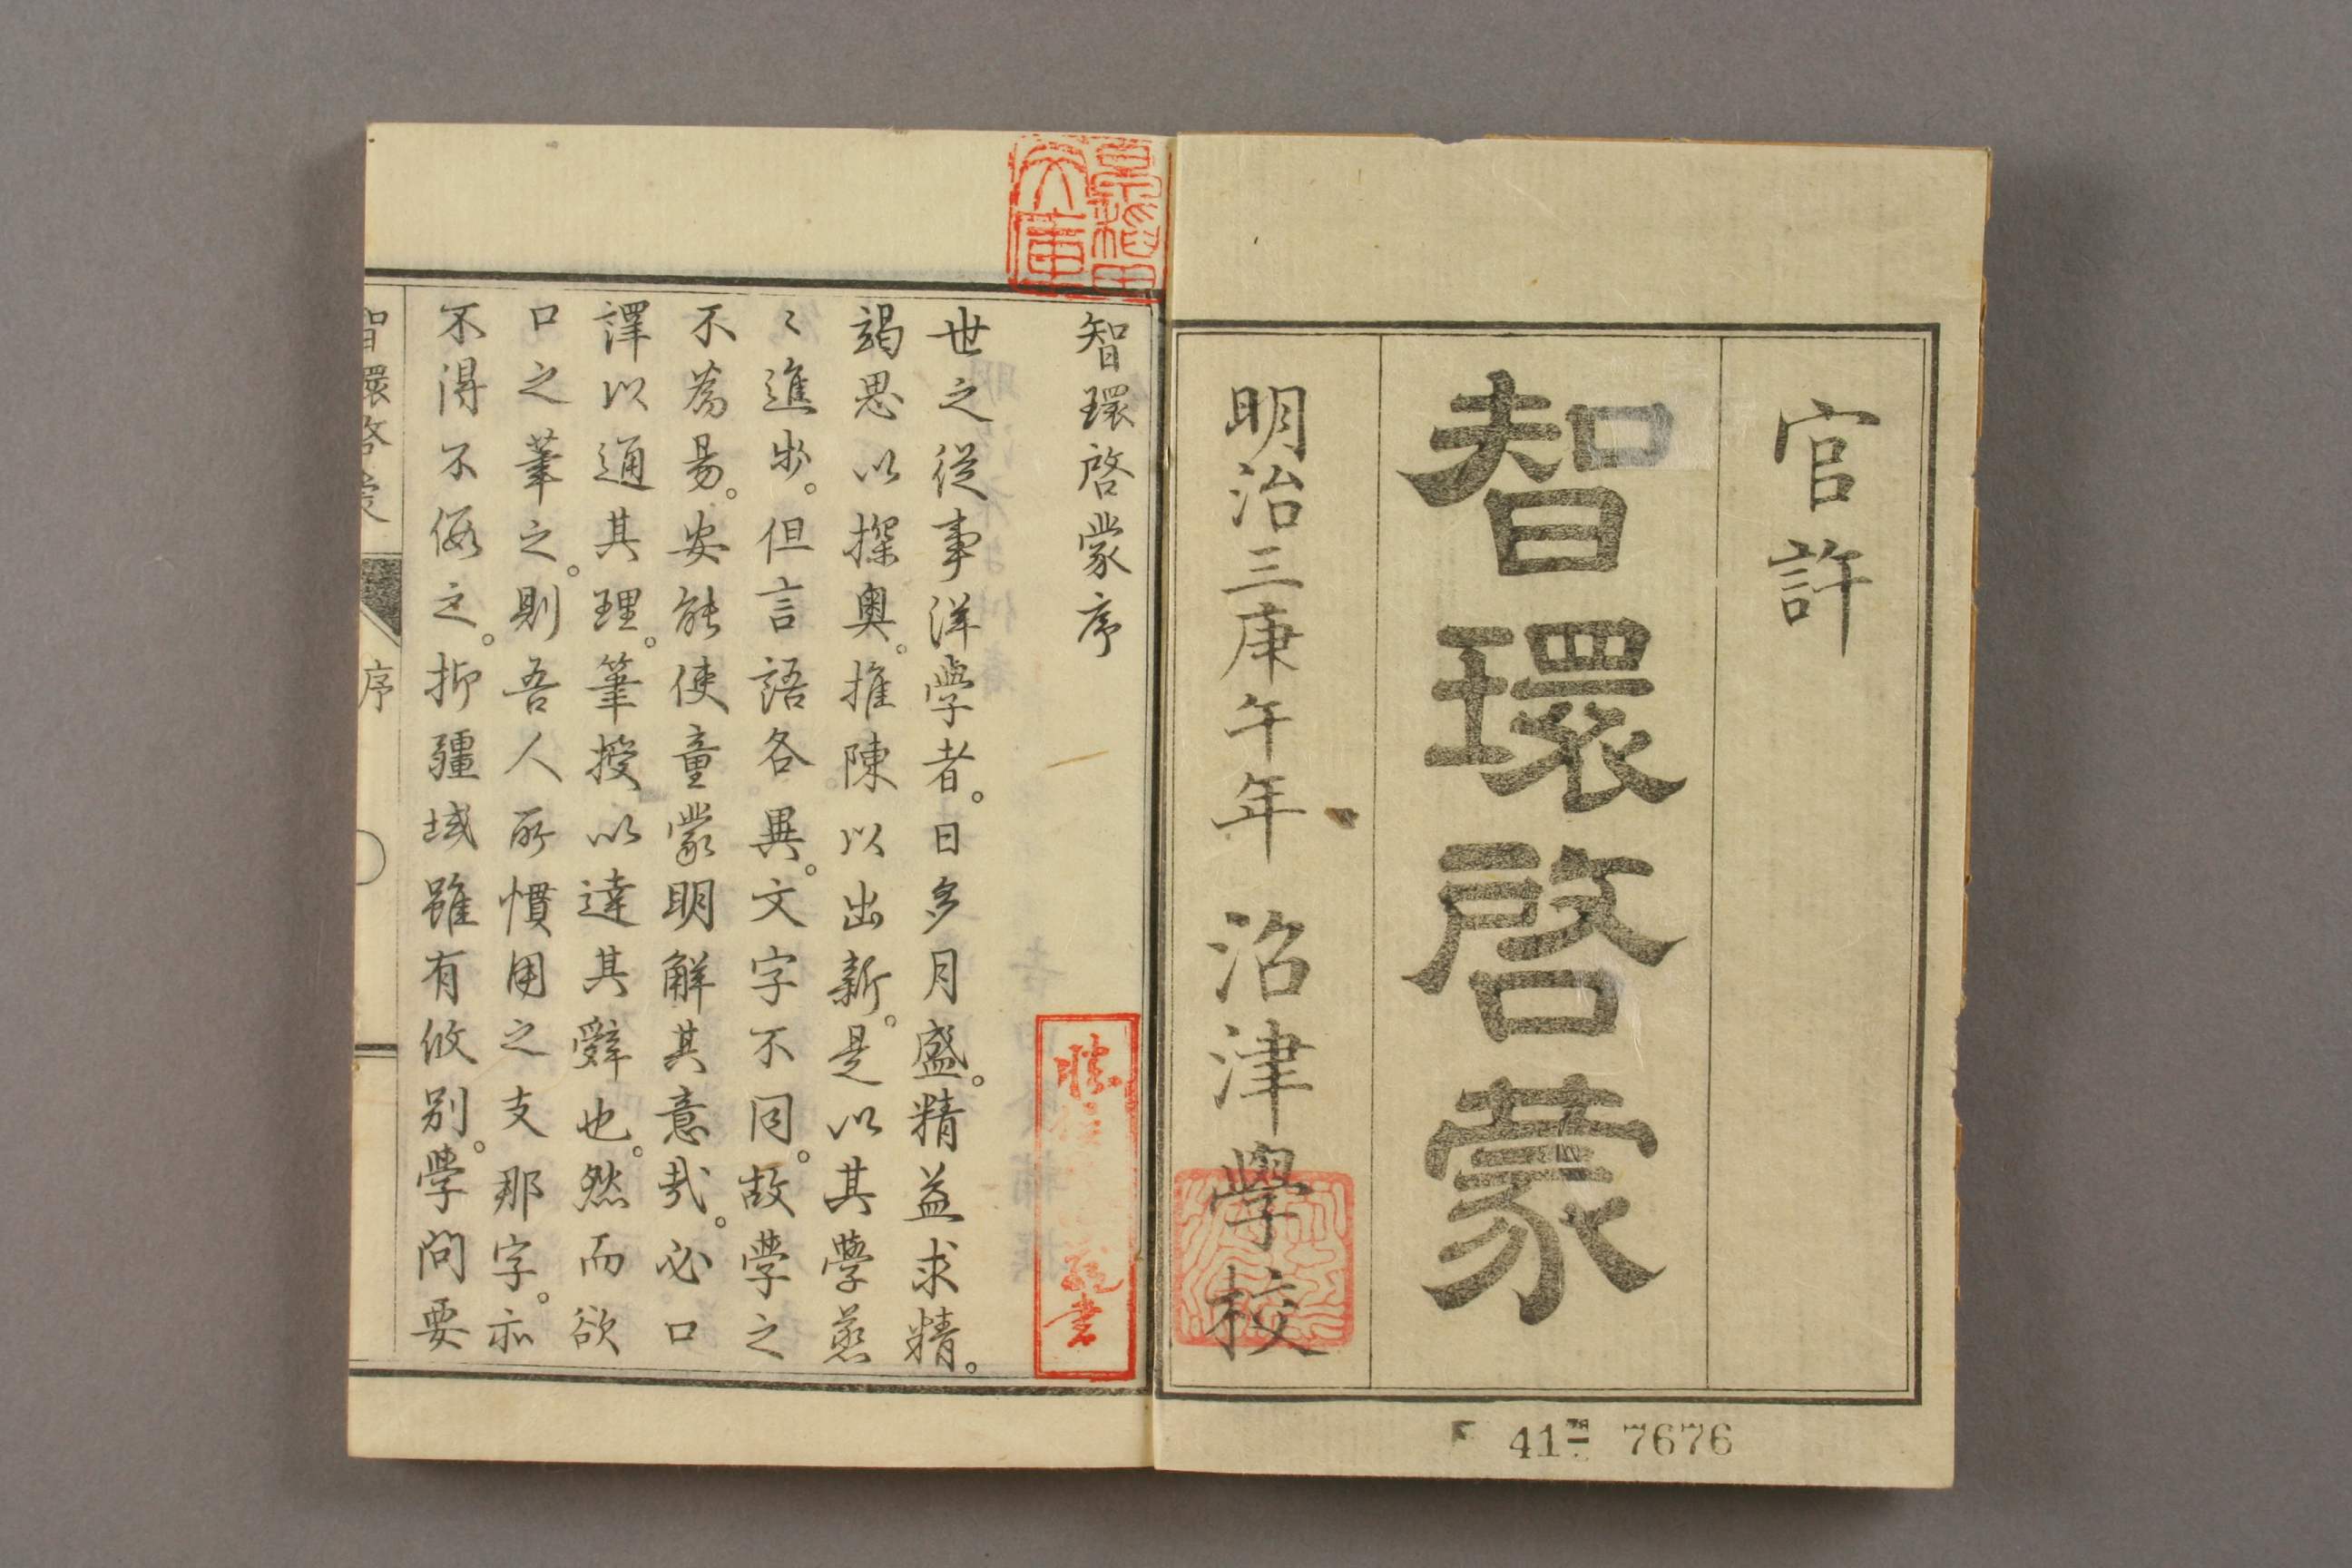 官許
智環啓蒙
明治三庚午年 沼津學校
41 7676
智環啓蒙序
世之從事洋學者。日多月盛。精益求精。
竭思以探奥。推陳以出新。是以其學蒸
〻進步。但言語各異。文字不同。故學之
不為易。安能使童蒙明解其意哉。必口
譯以通其理。筆授以達其辭也。然而欲
口之筆之。則吾人所慣用之支那字。亦
不得不假之。抑疆域雖有攸別。學問要
智環啓蒙 序